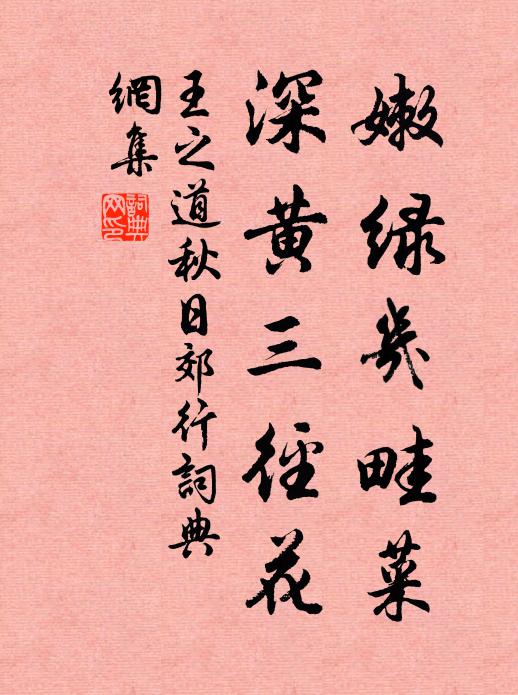 嫩绿幾畦菜
深黄三徑花
王之道秋日郊行詞典
網集
詞典
网印